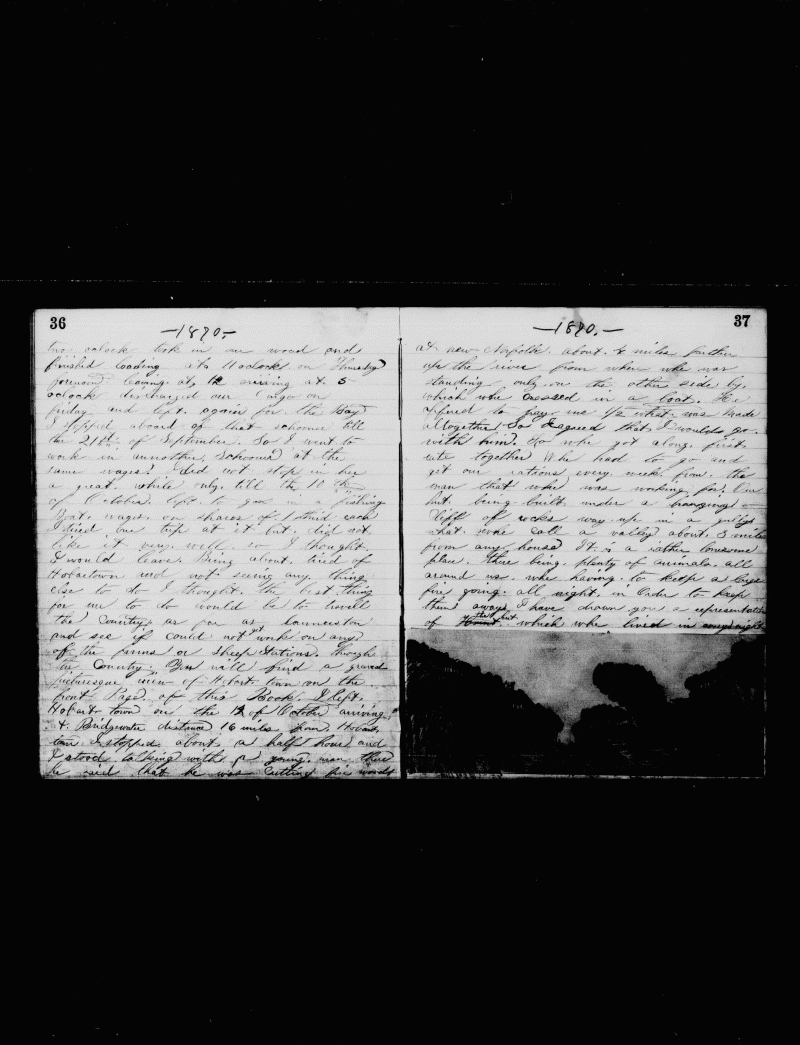 36
—1870.—
two oclock took in our wood and
finished loading at 11 oclock on Thursday
forenoon leaving at 12 ariving at 5
oclock discharged our Cargo on
friday and left again for the Bay
I stopped aboard of that schooner till
the 21st of September. So I went to
work in annother Schooner at the
same wages. Did not stop in her
a great while only till the 10th
of October. left to go in a fishing
Boat. wages on shares of 1 third each
I tried one trip at it but did not
like it very well. so I thought
I would leave. Being about tired of
Hobartown and not seeing any thing
else to do I thought the best thing
for me to do would be to travell
the Country as far as Launceston
and see if could not get work on any
of the farms or Sheep Stations. through
the Country. You will find a grand
picturesque view of Hobart town on the
front Page of this Book. I left
Hobart town on the 12 of October arriving
at Bridgewater distance 16 miles from Hobart
town I stopped about a half hour and
I stood talking with a young man there
he said that he was Cutting fire wood
37
—1870.—
at new Norfolk. about 4 miles further
up the river from where whe was
standing only on the other side by.
which whe crossed in a boat. He
offered to pay me 1/2 what was made
alltogether So I agreed that I would go
with him. So whe got along first
rate together Whe had to go and
get our rations every week from the
man that whe was working for. Our
hut being built under a hanging
Cliff of rocks way up in a gully
what whe call a valley about 3 miles
from any house It is a rather lonesome
place. there being plenty of animals all
around us. whe having to keep a large
fire going all night in Order to keep
them away. I have drawn you a representation
of the hut which whe lived in every night